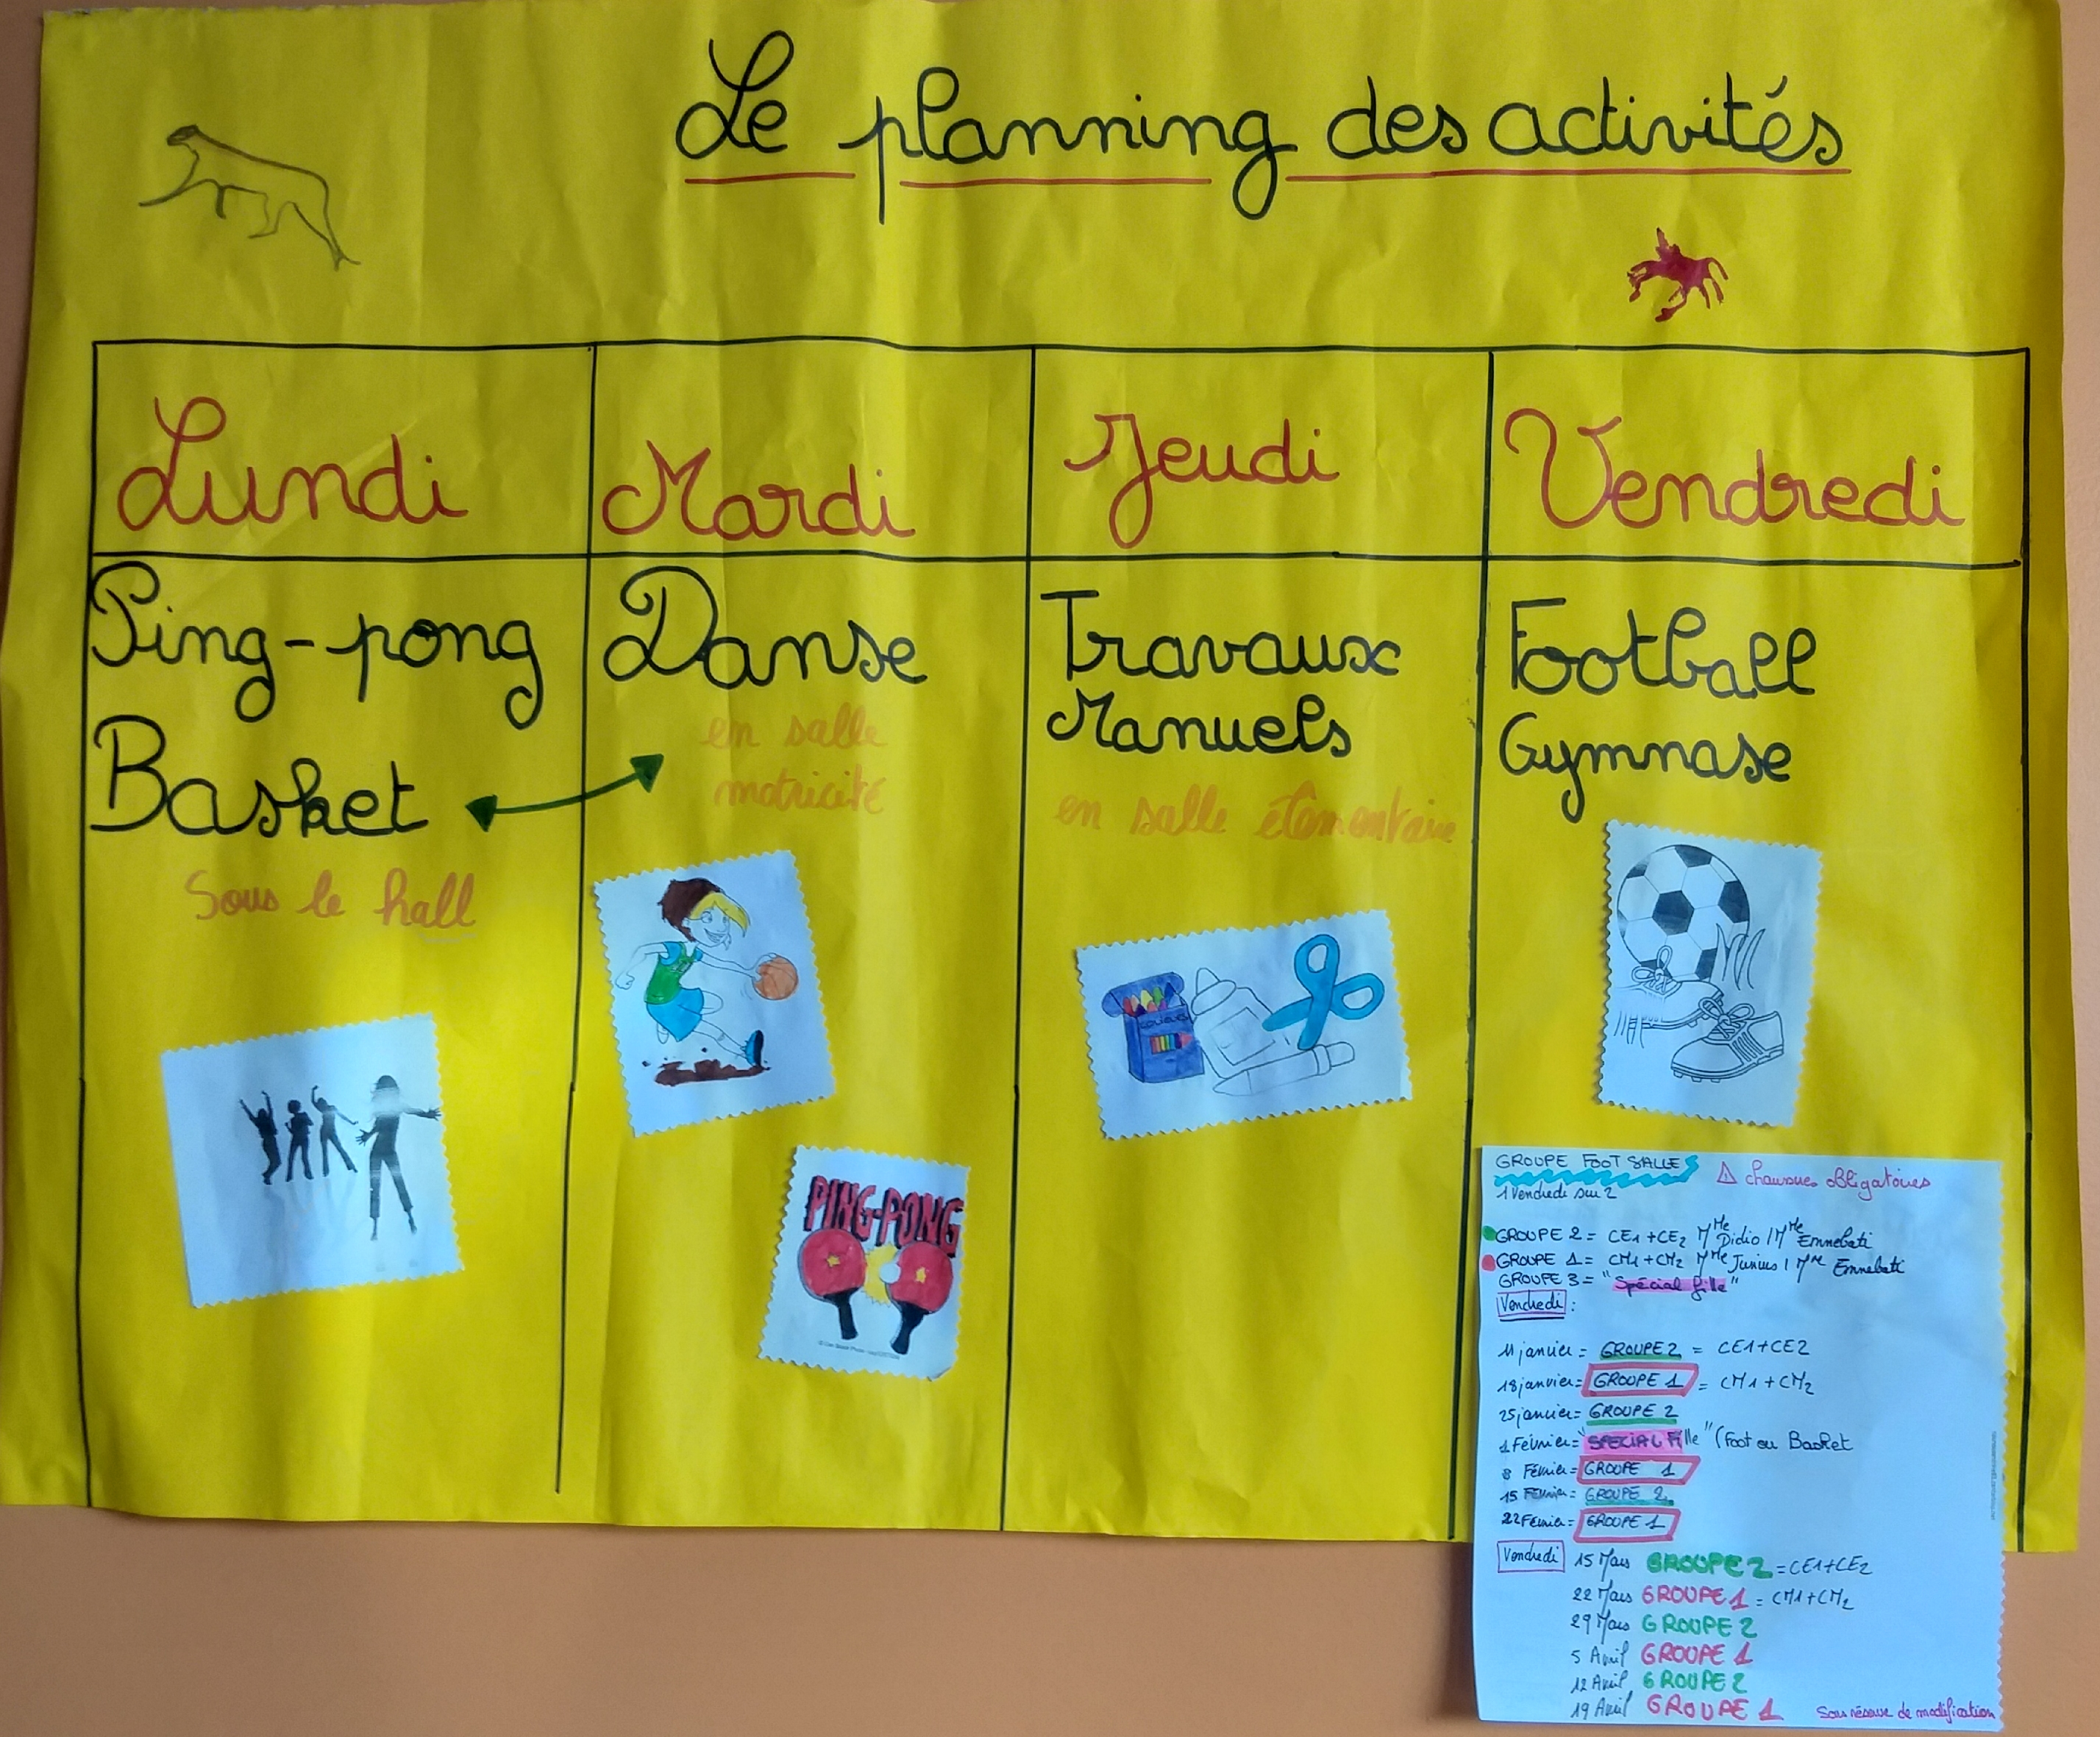 Le planning des activités
Lundi
Ping-pong
Basket
Sous le hall
Mardi
Danse
en salle
motricité
PING-PONG
Jeudi
Travaux
Manuels
en salle élémentaire
COULEURS
Vendredi
Football
Gymnase
GROUPE FOOT SALLE ⚠ chaussures obligatoires
1 Vendredi sur 2
GROUPE 2 = CE1+CE2 Mme Didio / Mme Ennebati
GROUPE 1 = CM1+CM2 Mme Junius / Mme Ennebati
GROUPE 3 = "Spécial fille"
Vendredi :
11 janvier = GROUPE 2 = CE1+CE2
18 janvier = GROUPE 1 = CM1+CM2
25 janvier = GROUPE 2
1 Février = "SPECIAL Fille" (Foot ou Basket
8 Février = GROUPE 1
15 Février = GROUPE 2
22 Février = GROUPE 1
Vendredi 15 Mars GROUPE 2 = CE1+CE2
22 Mars GROUPE 1 = CM1+CM2
29 Mars GROUPE 2
5 Avril GROUPE 1
12 Avril GROUPE 2
19 Avril GROUPE 1 Sous réserve de modification